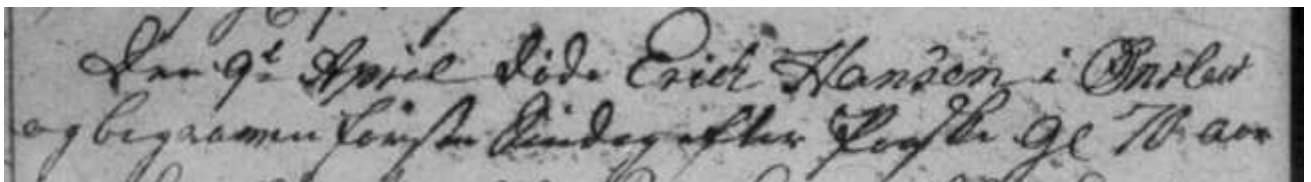 Den 9t April døde Erich Hansen i Ønslev
og begraven første Søndag efter Paaske gl 70 aar